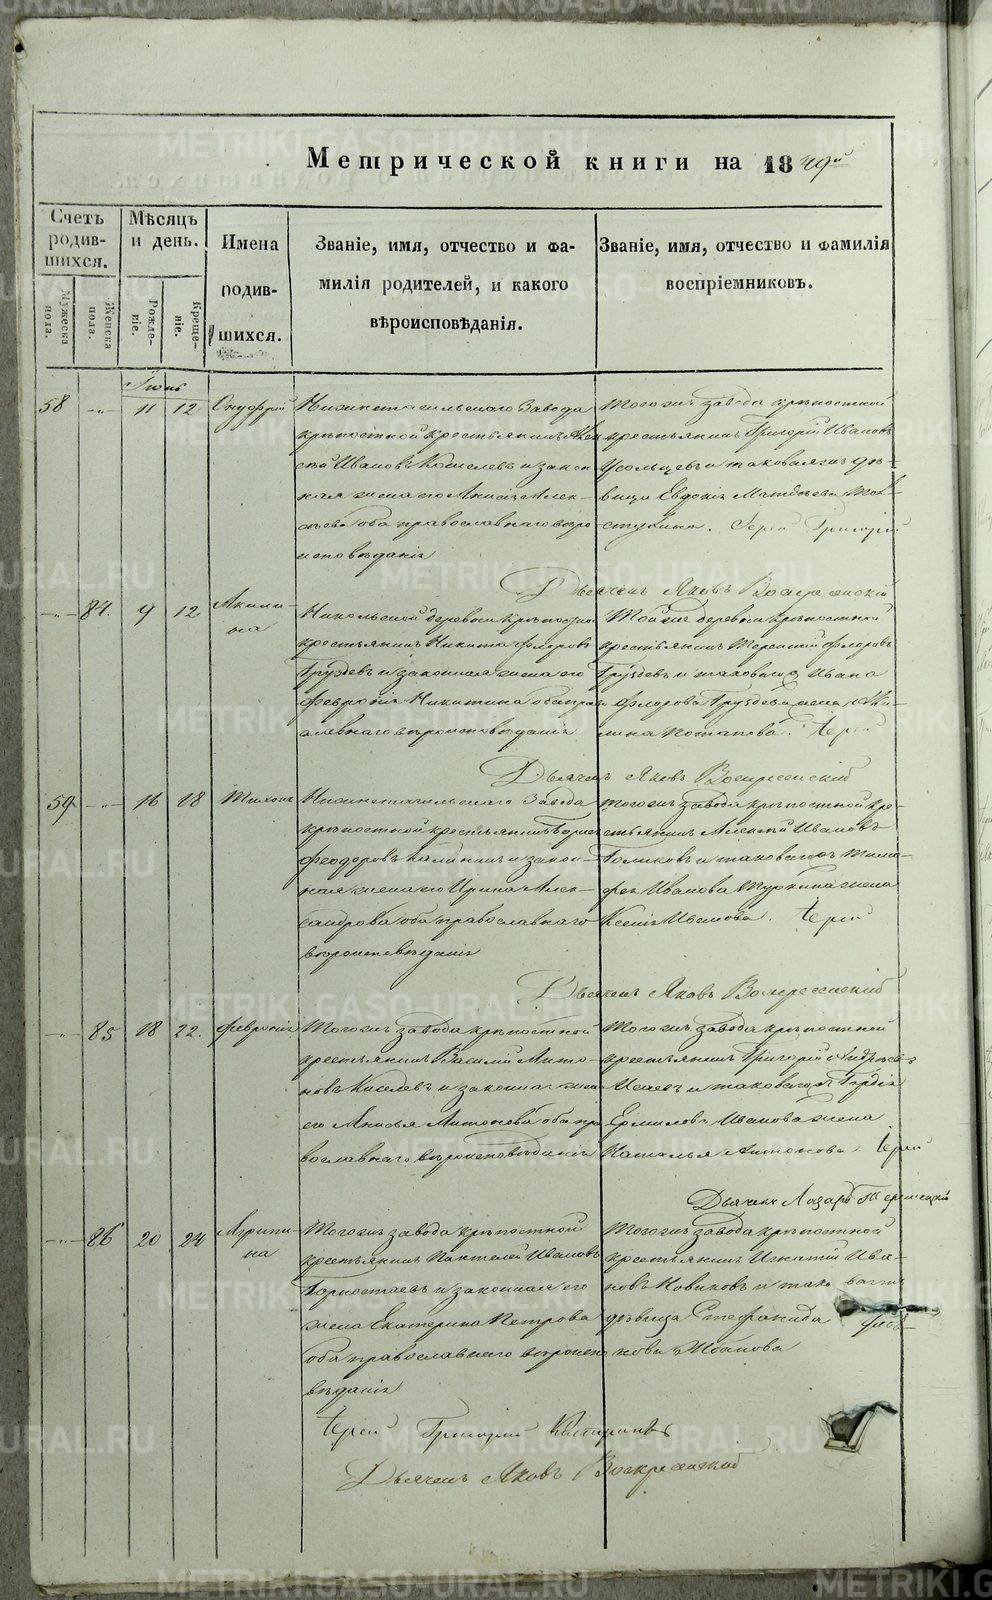 Метрической книги на 1849й
Счетъ родив-шихся.
Мѣсяцъ и день.
Имена родив-шихся.
Званіе, имя, отчество и фа-
милія родителей, и какого
вѣроисповѣданія.
Званіе, имя, отчество и фамилія
воспріемниковъ.
Мужеска пола.
Женска пола.
Рожде-ніе.
Креще-ніе.
Іюнь
58 -"- 11 12 Онуфрій
Нижнетагильскаго Завода
крѣпостной крестьянинъ Алек
сѣй Ивановъ Кошелевъ и закон
ная жена его Анисія Алек-
сѣева оба православнаго вѣро
исповѣданія
Тогожъ завода крѣпостной
крестьянинъ Григорій Ивановъ
Усольцевъ и таковаяжъ дѣ-
вица Евдокія Матвѣева Тол-
стухина. Іерей Григорій
Дьячекъ Яковъ Воскресенскій
-"- 84. 9 12 Акили-
на
Никольской деревни крѣпостной
крестьянинъ Никита Флоровъ
Груздевъ и законная жена его
Февронія Никитина оба право
славнаго вѣроисповѣданія
Тойже деревни крѣпостной
крестьянинъ Терентій Флоровъ
Груздевъ и таковагожъ Ивана
Флорова Груздева жена Аки-
лина Потапова. Іерей
Дьячекъ Яковъ Воскресенскій
59 -"- 16 18 Тихонъ
Нижнетагильскаго Завода
крѣпостной крестьянинъ Борисъ
Феодоровъ Калининъ и закон-
ная жена его Ирина Алек-
сандрова оба православнаго
вѣроисповѣданія
тогожъ завода крѣпостной кре-
стьянинъ Алексѣй Ивановъ
Голиковъ и таковагожъ Тимо-
фея Иванова Туркина жена
Ксенія Иванова. Іерей
Дьячекъ Яковъ Воскресенскій
-"- 85 18 22. Февронія
Тогожъ завода крѣпостной
крестьянинъ Василій Анто-
новъ Киселевъ и законная жена
его Анисья Антонова оба пра
вославнаго вѣроисповѣданія
Тогожъ завода крѣпостной
крестьянинъ Григорій Андреевъ
Исаевъ и таковагожъ Гордія
Ермилова Иванова жена
Наталья Антонова. Іерей
Дьячекъ Лазарь
-"- 86 20 24 Агрипи-
на
Тогожъ завода крѣпостной
крестьянинъ Пантелей Ивановъ
Горностаевъ и законная его
жена Екатерина Петрова
оба православнаго вѣроиспо
вѣданія
Тогожъ завода крѣпостной
крестьянинъ Игнатій Ива-
новъ Новиковъ и тако ваяжъ
дѣвица Стефанида
Іерей Григорій
Дьячекъ Яковъ Воскресенскій